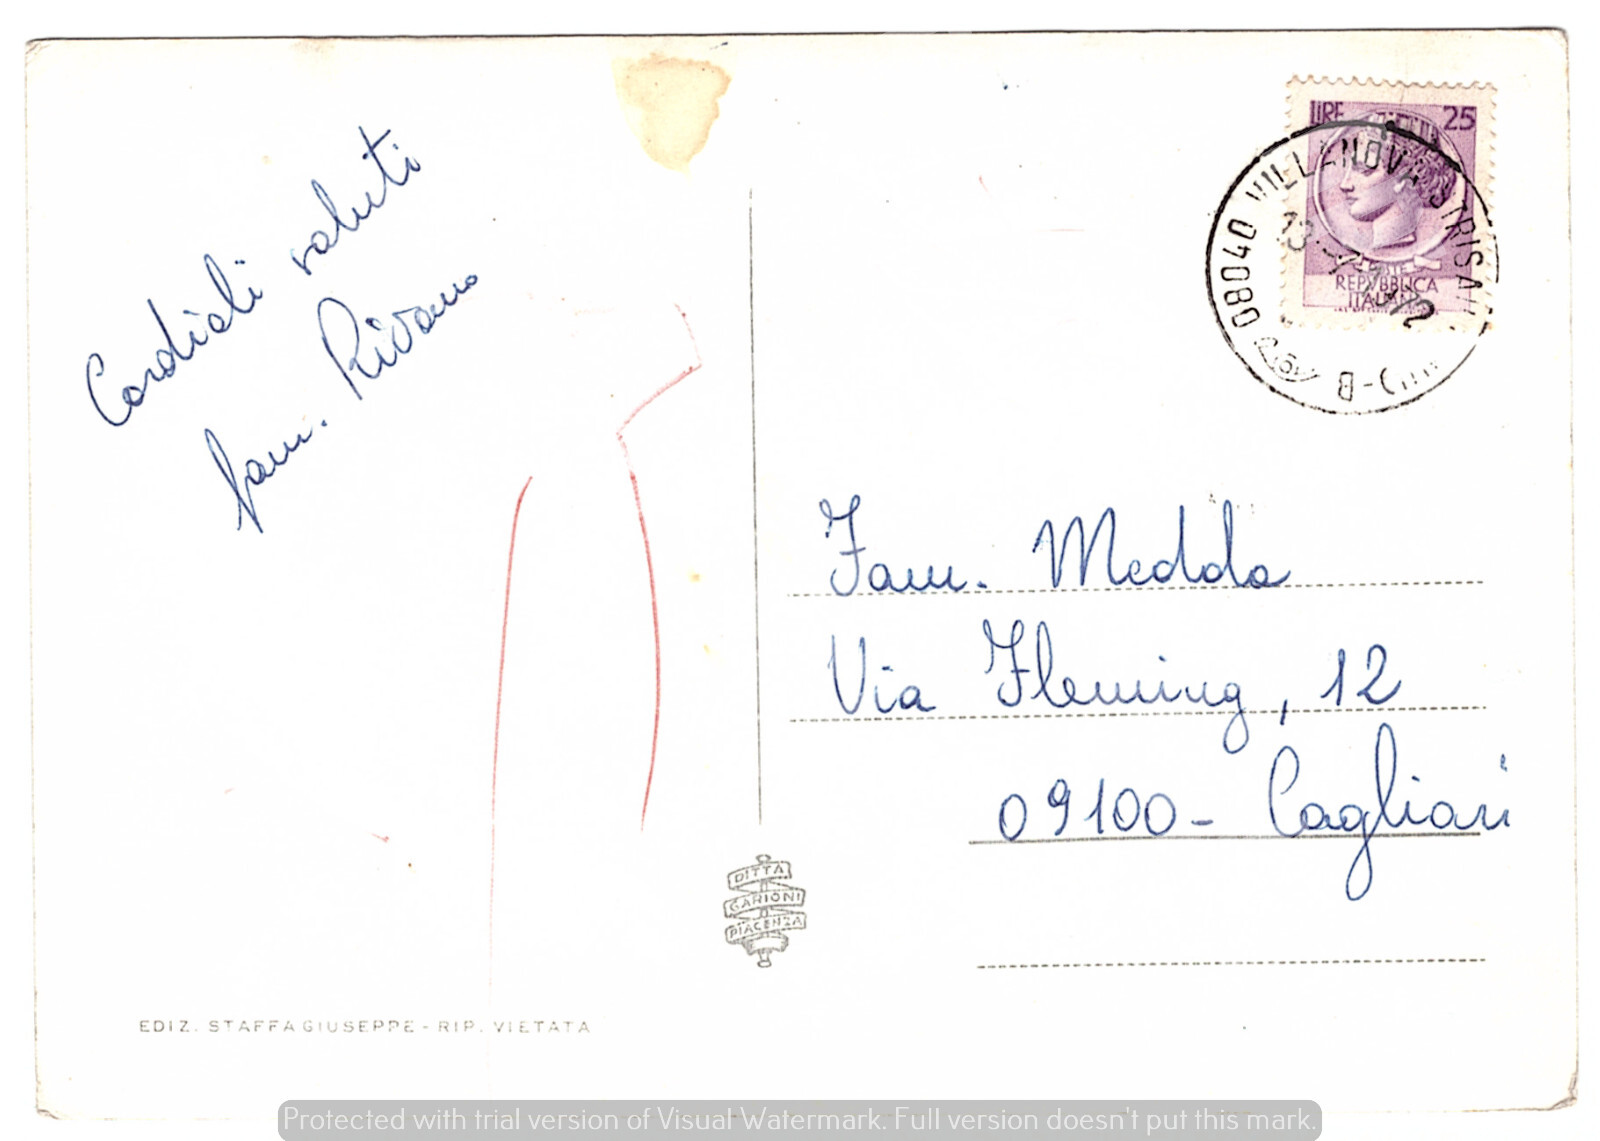 Cordiali saluti
fam. Rivano
LIRE 25
POSTE
REPVBBLICA
ITALIANA
08040 VILLANOVA STRISAILI
Fam. Medda
Via Fleming, 12
09100 - Cagliari
DITTA
GARIONI
PIACENZA
EDIZ. STAFFA GIUSEPPE - RIP. VIETATA
Protected with trial version of Visual Watermark. Full version doesn't put this mark.